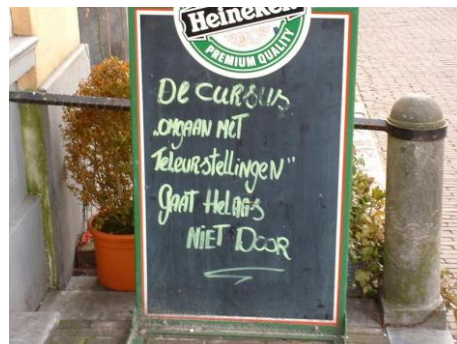 Heineken
PREMIUM QUALITY
De cursus
„omgaan met
Teleurstellingen"
gaat Helaas
Niet Door